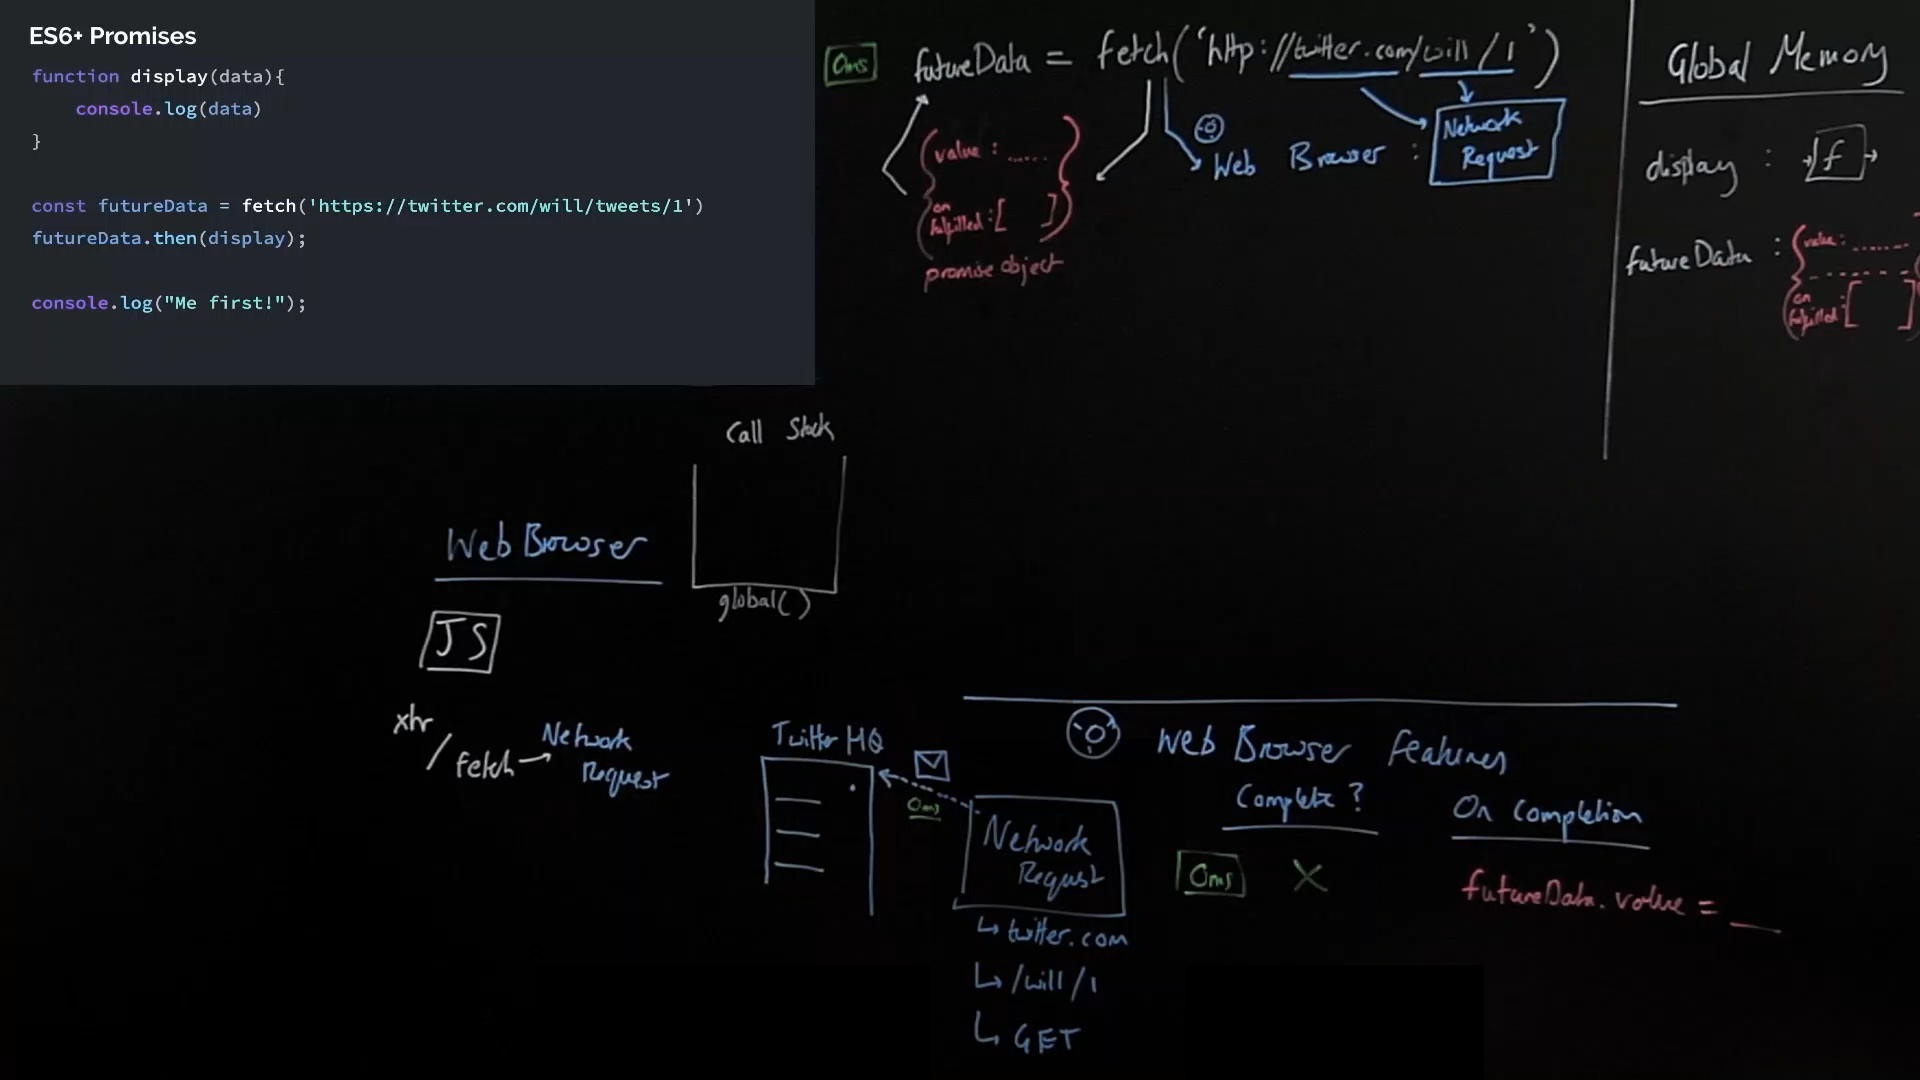 ES6+ Promises
function display(data){
    console.log(data)
}
const futureData = fetch('https://twitter.com/will/tweets/1')
futureData.then(display);
console.log("Me first!");
0ms futureData = fetch('http://twitter.com/will/1')
{value : ......
on
fulfilled : [ ] }
promise object
Web Browser : Network
Request
Global Memory
display : f
futureData : {value : .......
on
fulfilled : [ ]
Call Stack
global()
Web Browser
JS
xhr
/ fetch → Network
Request
Twitter HQ
0ms
Web Browser features
Network
Request
↳ twitter.com
↳ /will/1
↳ GET
Complete ?
0ms X
On completion
futureData.value = __